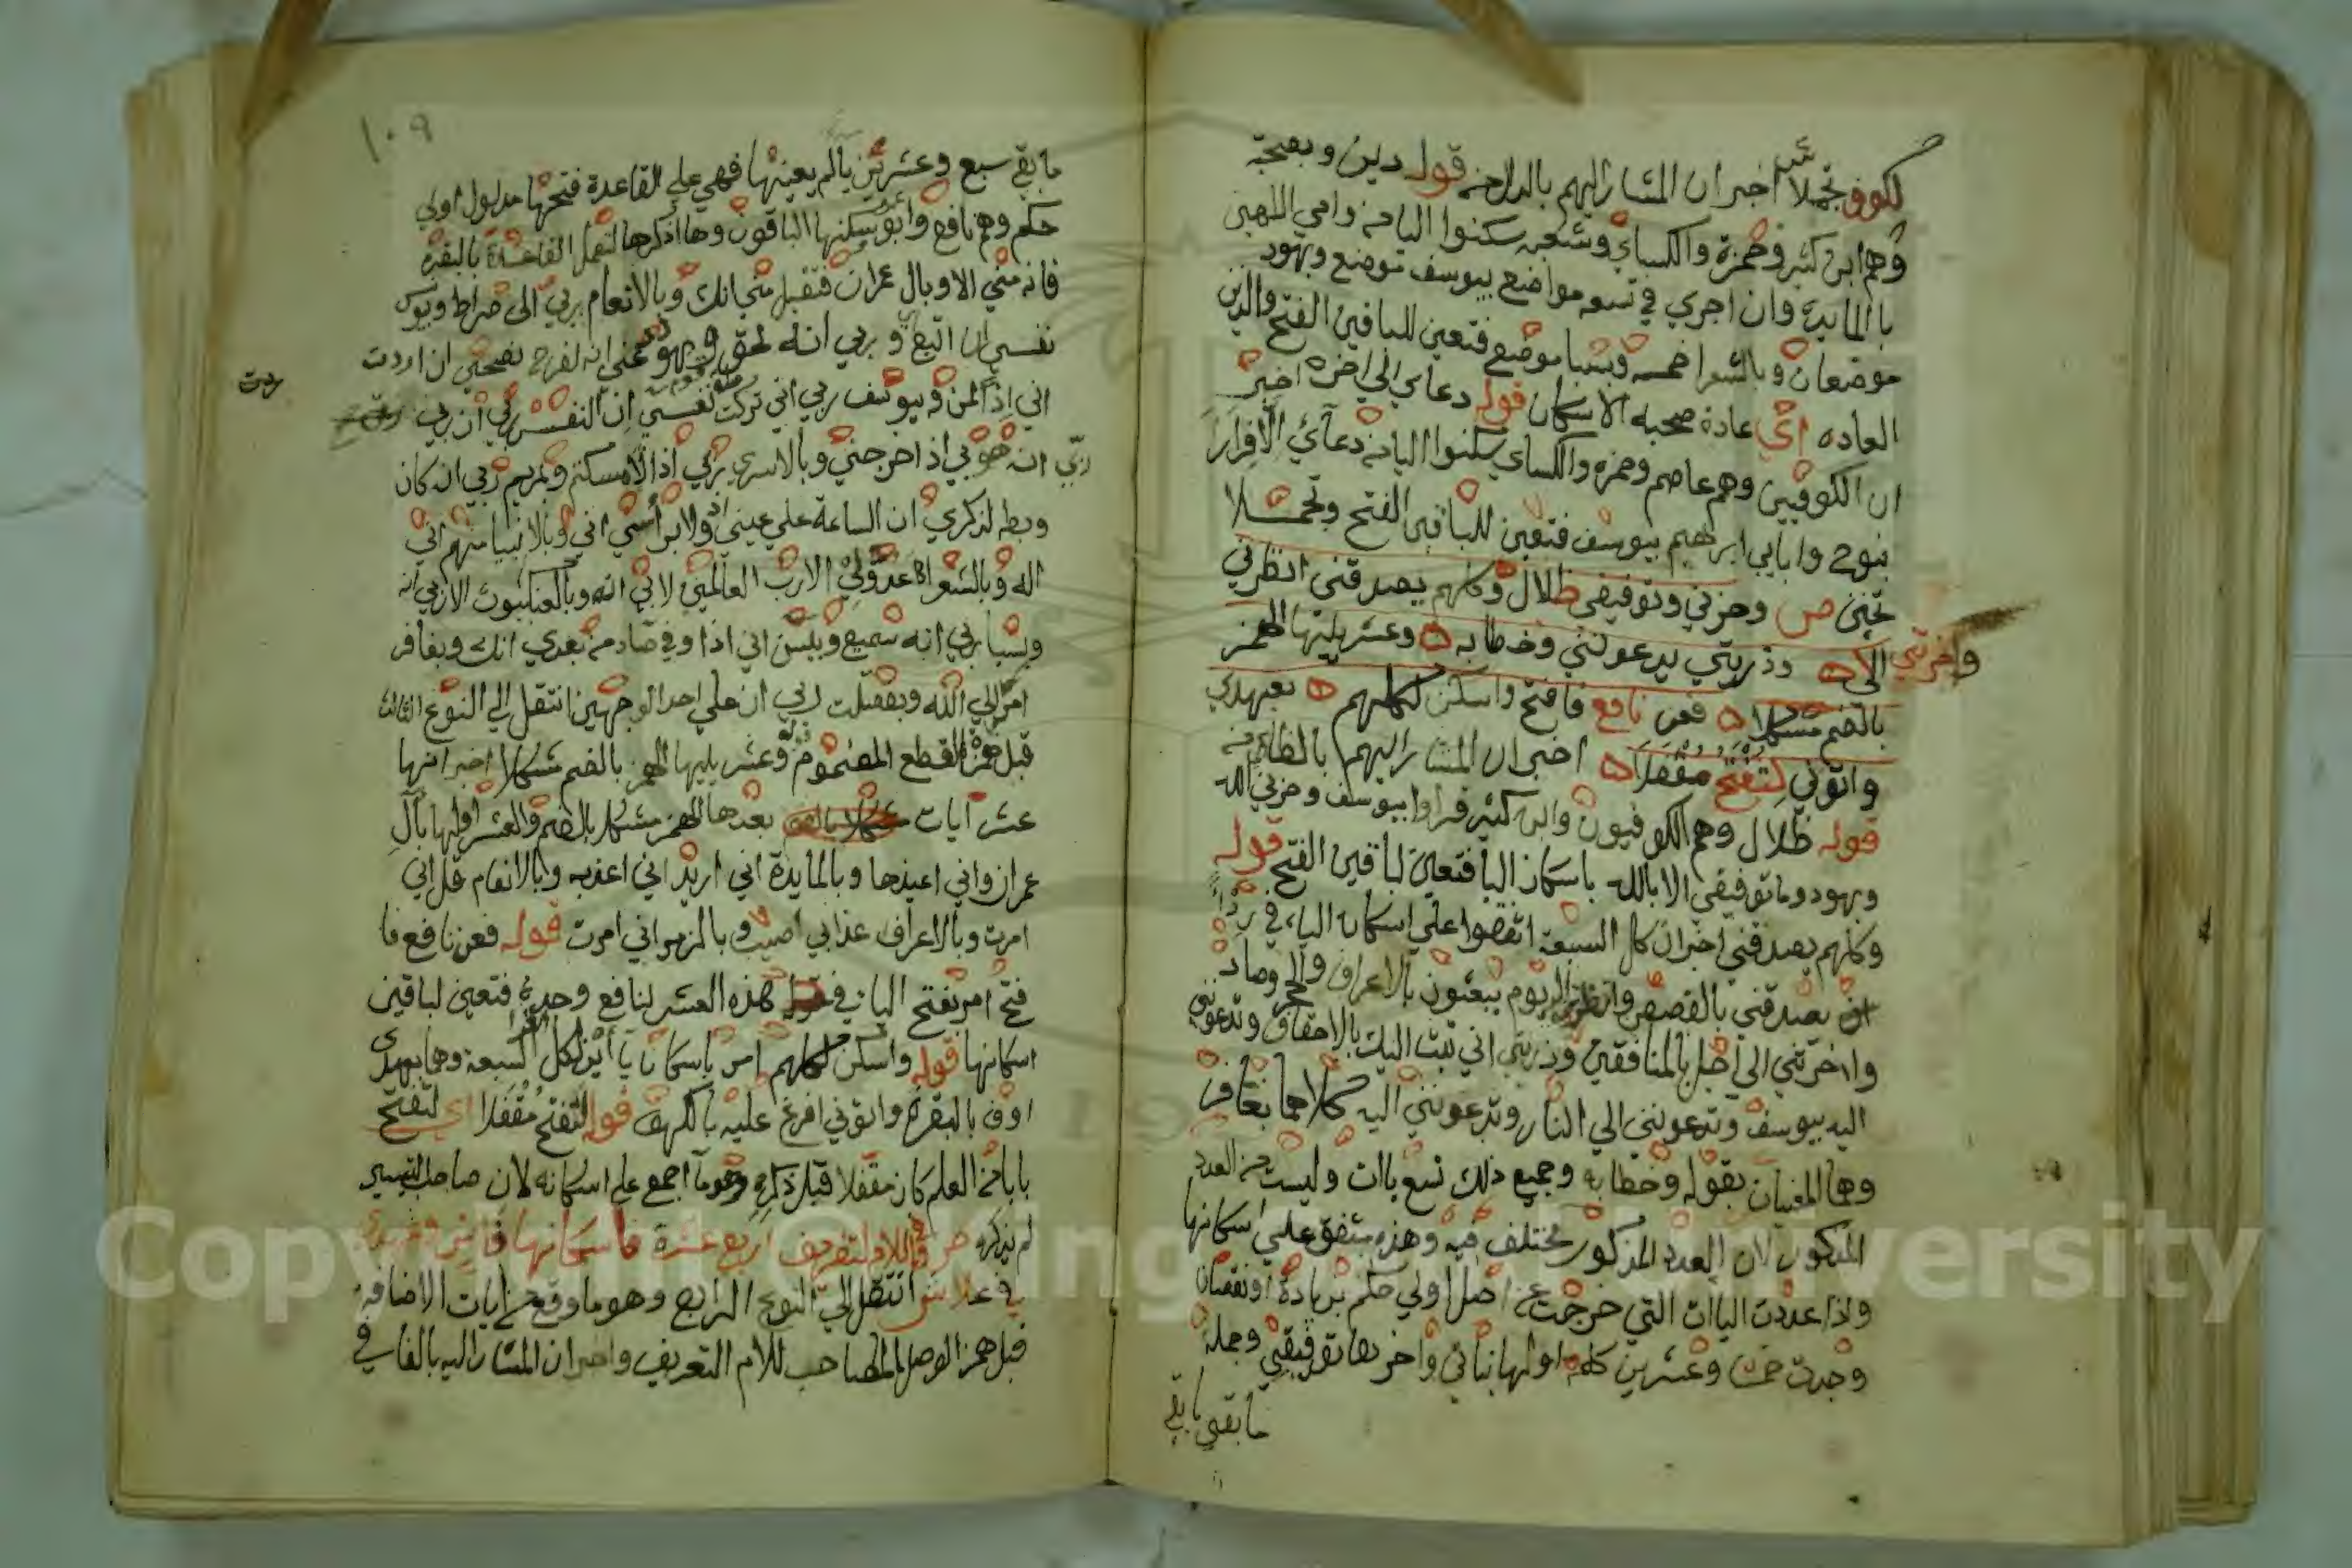 لكوف تجملا اخبر ان المشار اليهم بالدال من قوله دين وبصحبة
وهم ابن كثير وحمزة والكساي وشعبه سكنوا اليا من وامي اللهين
بالمايدة وان اجري في تسعه مواضع بيوسف موضع وبهود
موضعان وبالشعرا خمسه وبسبا موضع فتعين للباقين الفتح والذين
العاده اي عادة صحبه الاسكان قوله دعاي الي اخره اخبر
ان الكوفيين وهم عاصم وحمزه والكساي سكنوا اليا من دعاءي الا فرارا
بنوح وابايي ابرهيم بيوسف فتعين للباقين الفتح وتحملا
وحزني وتوفيقي ظلال وكلهم يصدقني انظرني
واخرتني الي وذريتي يدعونني وخطابه وعشر يليها الهمز
بالضم مشكلا فعن نافع فافتح واسكن لكلهم بعهدي
واتوني لتفتح مقفلا اخبر ان المشار اليهم بالظا من
قوله ظلال وهم الكوفيون وابن كثير قراوا بيوسف وحزني الي الله
وبهود وما توفيقي الا بالله باسكان اليا فتعين لباقين الفتح قوله
وكلهم يصدقني اخبر ان كل السبعة اتفقوا علي اسكان الياء في ردا
يصدقني بالقصص وانظرني الي يوم يبعثون بالاعراف والحجر وصاد
واخرتني الي اجل بالمنافقين وذريتي اني تبت اليك بالاحقاف وتدعونني
اليه بيوسف وتدعونني الي النار وتدعونني اليه كلاهما بغافر
وهما المعنيان بقوله وخطابه وجميع ذلك تسع ياات وليست من العدد
المذكور لان العدد المذكور مختلف فيه وهذه متفق علي اسكانها
واذا عددت الياات التي خرجت عن اصل اولي حكم بزيادة او نقصان
وجدت خمسا وعشرين كلمه اولها وآخرها توفيقي وجملة
ما بقي
١٠٩
ما بقي سبع وعشرين يا لم يعينها فهي علي القاعدة فتحها مدلول اولي
حكم وهم نافع وابو عمرو وسكنها الباقون وها اذكرها لتكمل القاعدة بالبقره
فانه مني الا وبال عمران فتقبل مني انك وبالانعام ربي الى صراط وبيونس
نفسي ان اتبع و ربي انه لحق وبهود عني انه لفرح نصحي ان اردت
ردت
اني اذا لمن وبيوسف ربي اني تركت نفسي ان النفس ربي ان ربي
ربي انه هو بي اذ اخرجني وبالاسري ربي اذا لامسكتم وبمريم ربي انه كان
وبطه لذكري ان الساعة علي عيني اذ ولا براسي اني وبالانبيا منهم اني
اله وبالشعرا عدو لي الا رب العالمين لابي انه وبالعنكبوت الي ربي انه
وبسبا ربي انه سميع وبيس اني اذا وفي صاد من بعدي انك وبغافر
امري الي الله وبفصلت ربي ان علي احد الوجهين انتقل الي النوع الثالث
قبل همزة القطع المضموم قوله وعشر يليها الهمز بالضم مشكلا اخبر انها
عشر آيات بعدها الهمز مشكلا بالضم والعشر اولها بآل
عمران واني اعيذها وبالمايدة اني اريد اني اعذبه وبالانعام قل اني
امرت وبالاعراف عذابي اصيب وبالزمر اني امرت قوله فعن نافع فا
فتح امر بفتح اليا في هذه العشر لنافع وحده فتعين لباقين
اسكانها قوله واسكن لكلهم امر باسكان ياأين لكل السبعة وهما بعهدي
اوف بالبقرة واتوني افرغ عليه بالكهف قوله لتفتح مقفلا اي لتفتح
بابا من العلم كان مقفلا قبل ذكره وهو ما اجمع علي اسكانه لان صاحب التيسير
لم يذكره وفي اللام لتعريف اربع عشرة فاسكانها فاش وعهدي
في علا ش انتقل الي النوع الرابع وهو ما وقع من ايات الاضافه
قبل همز الوصل المصاحب للام التعريف واخبر ان المشار اليه بالفا في
Copyright © King University